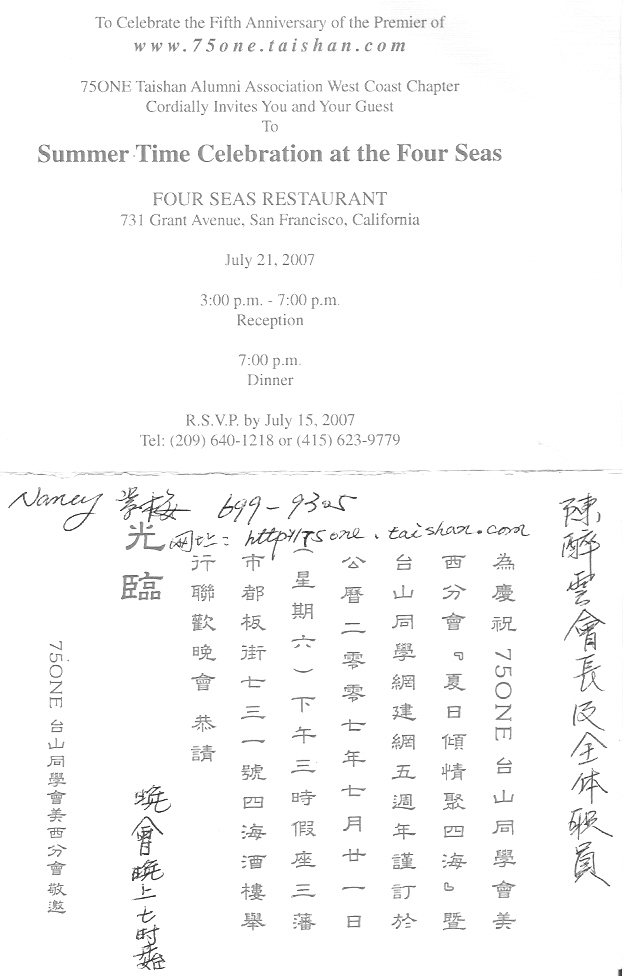 To Celebrate the Fifth Anniversary of the Premier of
www.75one.taishan.com
75ONE Taishan Alumni Association West Coast Chapter
Cordially Invites You and Your Guest
To
Summer Time Celebration at the Four Seas
FOUR SEAS RESTAURANT
731 Grant Avenue, San Francisco, California
July 21, 2007
3:00 p.m. - 7:00 p.m.
Reception
7:00 p.m.
Dinner
R.S.V.P. by July 15, 2007
Tel: (209) 640-1218 or (415) 623-9779
Nancy 699-9305
网址: http//75one.taishan.com
陳醉雲會長及全体职員
為慶祝75ONE台山同學會美
西分會『夏日傾情聚四海』暨
台山同學網建網五週年謹訂於
公曆二零零七年七月廿一日
(星期六)下午三時假座三藩
市都板街七三一號四海酒樓舉
行聯歡晚會 恭請
光臨
晚會晚上七时
75ONE台山同學會美西分會 敬邀